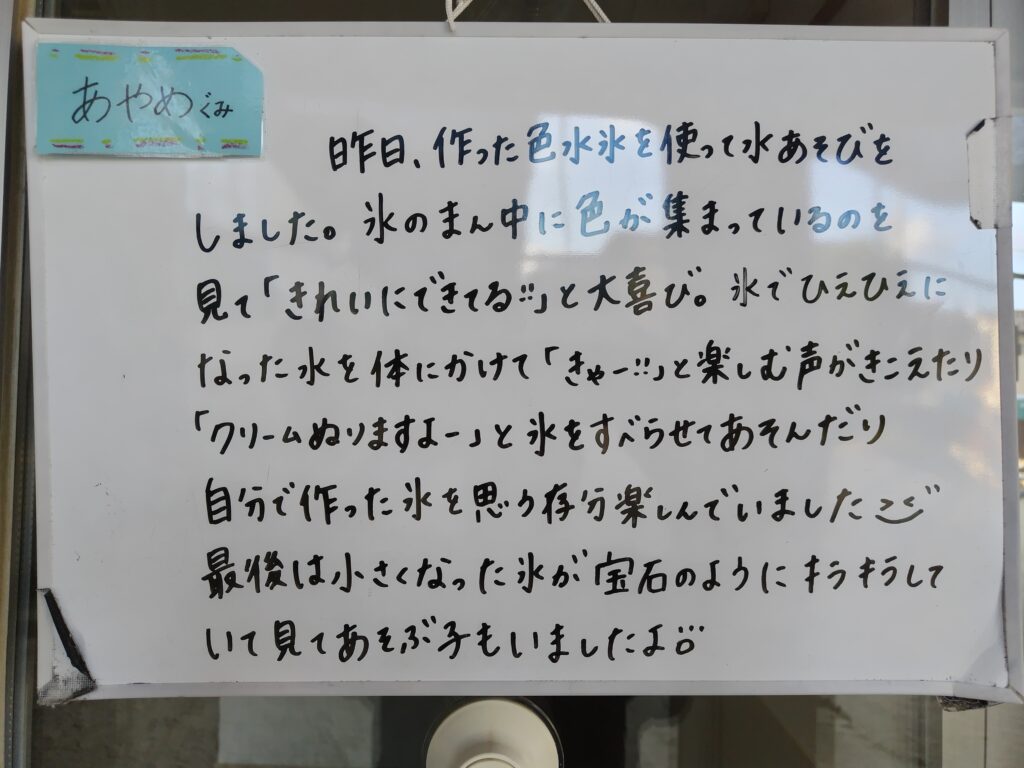 あやめぐみ
昨日、作った色水氷を使って水あそびを
しました。氷のまん中に色が集まっているのを
見て「きれいにできてる!!」と大喜び。氷でひえひえに
なった水を体にかけて「きゃー!!」と楽しむ声がきこえたり
「クリームぬりますよー」と氷をすべらせてあそんだり
自分で作った氷を思う存分楽しんでいました
最後は小さくなった氷が宝石のようにキラキラして
いて見てあそぶ子もいましたよ